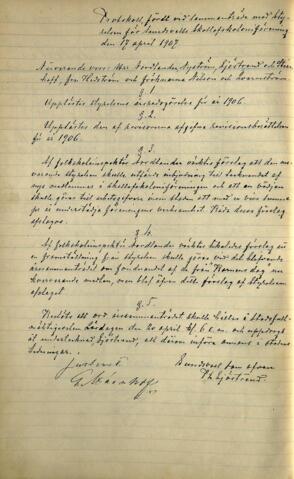 Protokoll, fördt vid sammanträde med Sty-
relsen för Sundsvalls Skollofskolonisförening
den 17 april 1907.
Närvarande voro: Hrr Nordlander, Nyström, Sjöstrand och
fru Hedström och fröknarna Nilson och
§ 1.
Upplästes styrelsens årsredogörelse för år 1906.
§ 2.
Upplästes den af revisorerna afgifna revisionsberättelsen
för år 1906.
§ 3.
Af folkskolinspektör Nordlander väcktes förslag att den nu-
varande styrelsen skulle utfärda inbjudning till tecknandet af
nya medlemmar i skollofskolonisföreningen och att en vädjan
skulle göras till arbetsgifvare inom staden att med en viss summa
per år understödja föreningens verksamhet. Båda dessa förslag
afslogos.
§ 4.
Af folkskolinspektör Nordlander väcktes likaledes förslag om
en framställning från styrelsen skulle göras vid det blifvande
årssammanträdet om fonderandet af de från Barnens dag nu
kvarvarande medlen, men blef äfven detta förslag af Styrelsen
afslaget.
§ 5.
Beslöts att ord. årssammanträdet skulle hållas i Stadsfull-
mäktigesalen Lördagen den 20 april kl 6 e.m. och uppdrogs
åt undertecknad Sjöstrand, att därom införa annons i stadens
tidningar.
Justerat
Sundsvall som ofvan
Sjöstrand